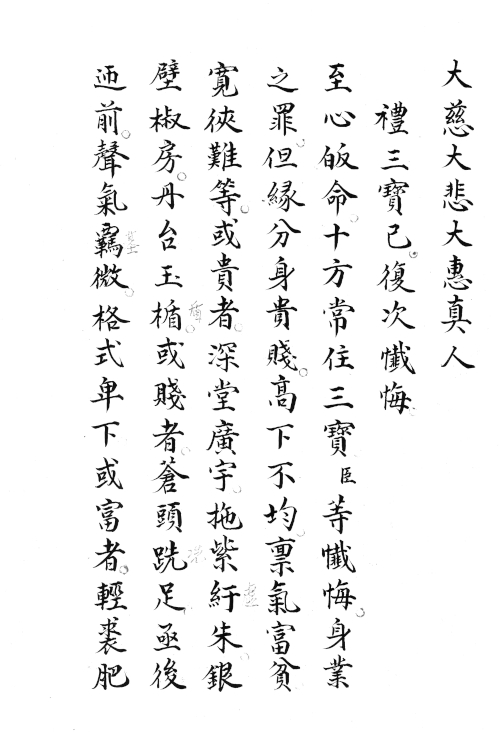 大慈大悲大惠真人
禮三寶已復次懺悔
至心皈命十方常住三寶臣等懺悔身業
之罪但緣分身貴賤高下不均禀氣富貧
寬狹難等或貴者深堂廣宇拖紫紆朱銀
壁椒房丹台玉楯或賤者蒼頭跣足亟後
迊前聲氣羈微格式卑下或富者輕裘肥